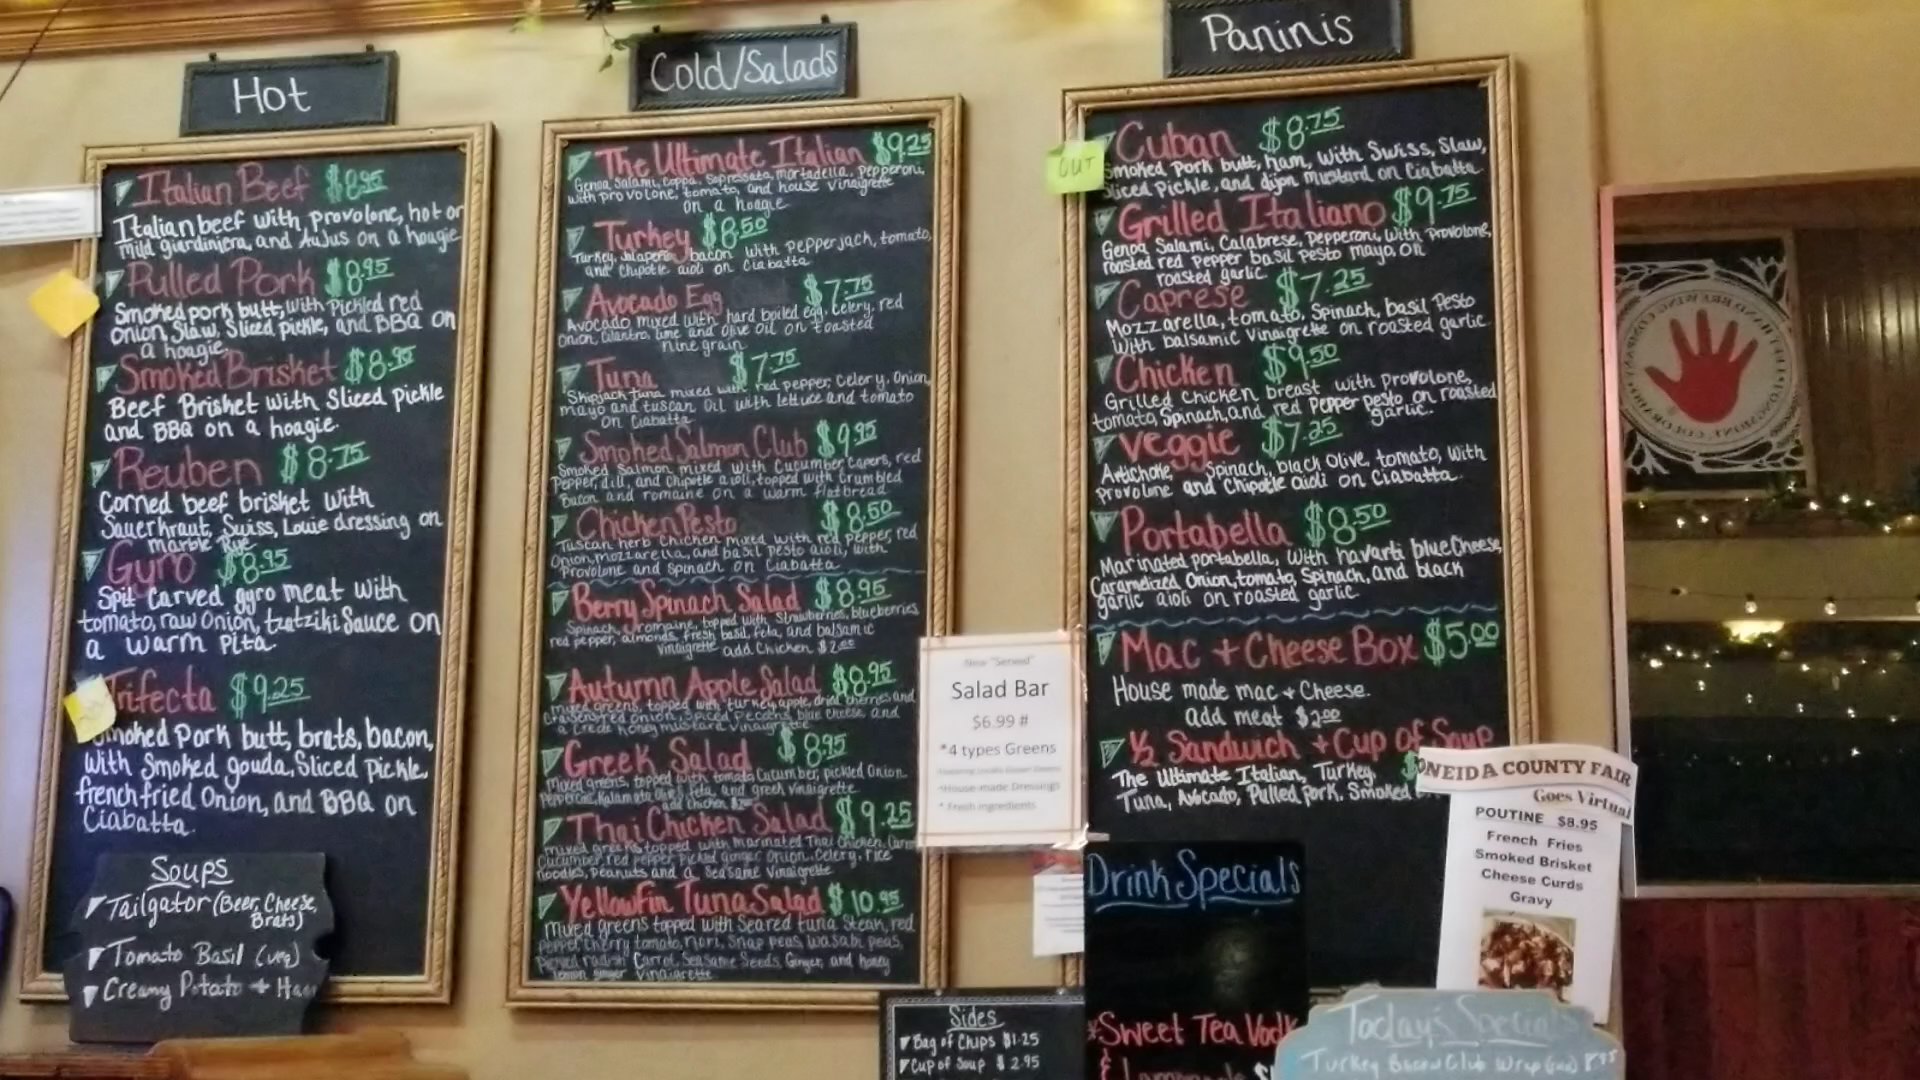 Hot
Italian Beef $8.95
Italian beef with provolone, hot or
mild giardiniera, and AuJus on a hoagie
Pulled Pork $8.95
Smoked pork butt, with Pickled red
onion, Slaw, Sliced pickle, and BBQ on
a hoagie.
Smoked Brisket $8.95
Beef Brisket with Sliced pickle
and BBQ on a hoagie.
Reuben $8.75
Corned beef brisket with
Sauerkraut, Swiss, Louie dressing on
marble Rye
Gyro $8.95
Spit carved gyro meat with
tomato, raw Onion, tzatziki Sauce on
a warm Pita.
Trifecta $9.25
Smoked Pork butt, brats, bacon,
With Smoked gouda, Sliced Pickle,
french fried Onion, and BBQ on
Ciabatta.
Soups
Tailgator (Beer, Cheese,
Brats)
Tomato Basil (veg)
Creamy Potato + Ham
Cold/Salads
The Ultimate Italian $9.25
Genoa Salami, Coppa, Sopressata, mortadella, Pepperoni,
with provolone, tomato, and house vinaigrette
on a hoagie
Turkey $8.50
Turkey, Jalapeno bacon with pepperjack, tomato,
and Chipotle aioli on Ciabatta
Avocado Egg $7.75
Avocado mixed with hard boiled egg, Celery, red
Onion, Cilantro, lime and olive oil on toasted
nine grain
Tuna $7.75
Skipjack tuna mixed with red pepper, Celery, Onion,
mayo and tuscan Oil with lettuce and tomato
on Ciabatta
Smoked Salmon Club $9.95
Smoked Salmon mixed with Cucumber, Capers, red
Pepper, dill, and Chipotle aioli, topped with Crumbled
Bacon and romaine on a warm flatbread
Chicken Pesto $8.50
Tuscan herb Chicken mixed with red pepper, red
Onion, mozzarella, and basil pesto aioli, with
Provolone and Spinach on Ciabatta
Berry Spinach Salad $8.95
Spinach, romaine, topped with Strawberries, blueberries
red pepper, almonds, fresh basil, feta, and balsamic
Vinaigrette add Chicken $2.00
Autumn Apple Salad $8.95
mixed greens, topped with turkey, apple, dried cherries, and
Craisens, red onion, Spiced Pecans, blue cheese, and
a Creole honey mustard Vinaigrette
Greek Salad $8.95
mixed greens, topped with tomato, Cucumber, pickled Onion,
Pepperoncini, Kalamata Olive, feta, and greek vinaigrette
add chicken $2.00
Thai Chicken Salad $9.25
mixed greens topped with marinated Thai Chicken, Carrot
Cucumber, red pepper, Picked ginger, Onion, Celery, rice
noodles, Peanuts and a Seasame Vinaigrette
Yellowfin Tuna Salad $10.95
Mixed greens topped with Seared tuna Steak, red
pepper, Cherry tomato, nori, Snap peas, wasabi peas,
Pickled radish, Carrot, Seasame Seeds, Ginger, and honey
lemon ginger Vinaigrette
Now "Served"
Salad Bar
$6.99 #
*4 types Greens
*House-made Dressings
* Fresh ingredients
Sides
Bag of Chips $1.25
Cup of Soup $2.95
Paninis
OUT
Cuban $8.75
Smoked Pork butt, ham, with Swiss, Slaw,
Sliced Pickle, and dijon mustard on Ciabatta.
Grilled Italiano $9.75
Genoa Salami, Calabrese, Pepperoni, with Provolone,
roasted red Pepper basil pesto mayo, on
roasted garlic.
Caprese $7.25
Mozzarella, tomato, Spinach, basil Pesto
With balsamic Vinaigrette on roasted garlic.
Chicken $9.50
Grilled Chicken breast with Provolone,
tomato, Spinach, and red pepper pesto on roasted
garlic.
Veggie $7.25
Artichoke, Spinach, black Olive, tomato, with
Provolone and Chipotle aioli on Ciabatta.
Portabella $8.50
Marinated portabella, with havarti blue Cheese,
Caramelized Onion, tomato, Spinach, and black
garlic aioli on roasted garlic.
Mac + Cheese Box $5.00
House made mac + Cheese.
add meat $2.00
½ Sandwich + Cup of Soup
The Ultimate Italian, Turkey, $
Tuna, Avocado, Pulled Pork, Smoked
Drink Specials
*Sweet Tea Vodk
& Lemonade
ONEIDA COUNTY FAIR
Goes Virtual
POUTINE $8.95
French Fries
Smoked Brisket
Cheese Curds
Gravy
Today's Specials
Turkey Bacon Club Wrap